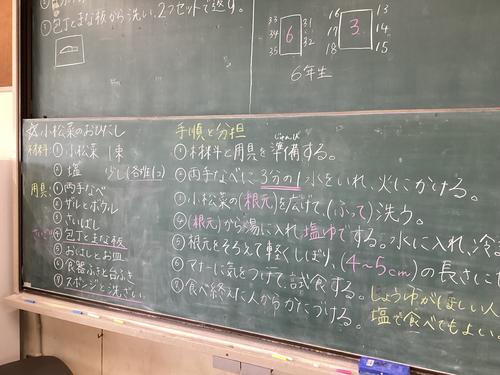 ①包丁とまな板から洗い、2つセットで返す。
33 34 35 6 31 32
16 17 18 3 13 14 15
6年生
小松菜のおひたし
材料 ①小松菜 1束
②塩 少し(各班1コ)
用具 ①両手なべ
②ザルとボウル
③さいばし
④包丁とまな板
⑤おはしとお皿
⑥食器ふきと台ふき
⑦スポンジと洗ざい
手順と分担
①材料と用具を準備する。
じゅんび
②両手なべに3分の1水をいれ、火にかける。
③小松菜の(根元)を広げて、(ふって)洗う。
④(根元)から湯に入れ塩ゆでする。水に入れ、冷
⑤根元をそろえて軽くしぼり、(4~5cm)の長さに
⑥マナーに気をつけて、試食する。
⑦食べ終えた人からかたづける。
しょうゆがほしい人
塩で食べてもよい。